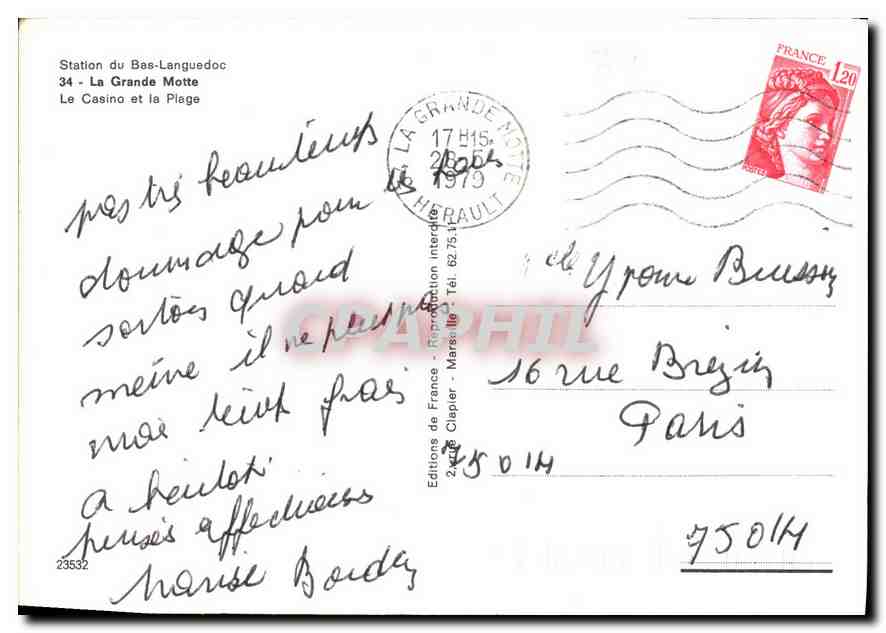 Station du Bas-Languedoc
34 - La Grande Motte
Le Casino et la Plage
pas très beau temps
dommage pour les
sortons quand
même il ne pleut pas
mais temps frais
a bientôt
pensées affectueuses
23532
LA GRANDE MOTTE
17H15
28-5
1979
HERAULT
FRANCE
1,20
POSTES
Editions de France - Reproduction interdite
2, rue Clapier - Marseille - Tél. 62.75.11
CPAPHIL
Yvonne
16 rue Brézin
Paris
75014
75014